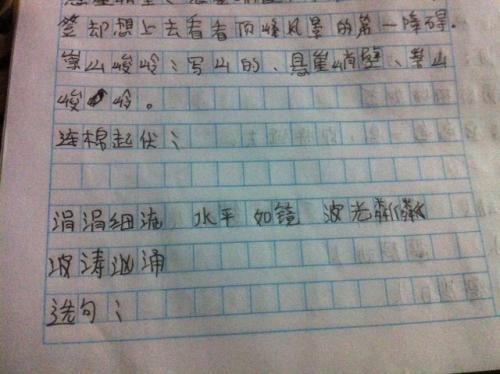 却想上去看看顶峰风景的第一障碍.
崇山峻岭:写山的、悬崖峭壁、崇山
峻岭。
连棉起伏:
涓涓细流 水平如镜 波光粼粼
波涛汹涌
选句: